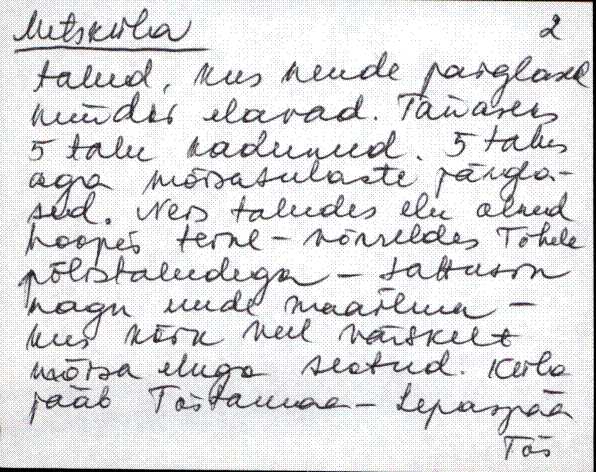 Metsküla 2
talud, kus nende järglased
nüüdki elavad. Tänaseks
5 talu kadunud. 5 talus
aga mõisasulaste järgla-
sed. Neis taludes elu olnud
hoopis teine – võrreldes Tõhela
põlistaludega – sattusin
nagu uude maailma –
kus kõik veel värskelt
mõisa eluga seotud. Küla
jääb Tõstamaa – Lepaspää
Tõs